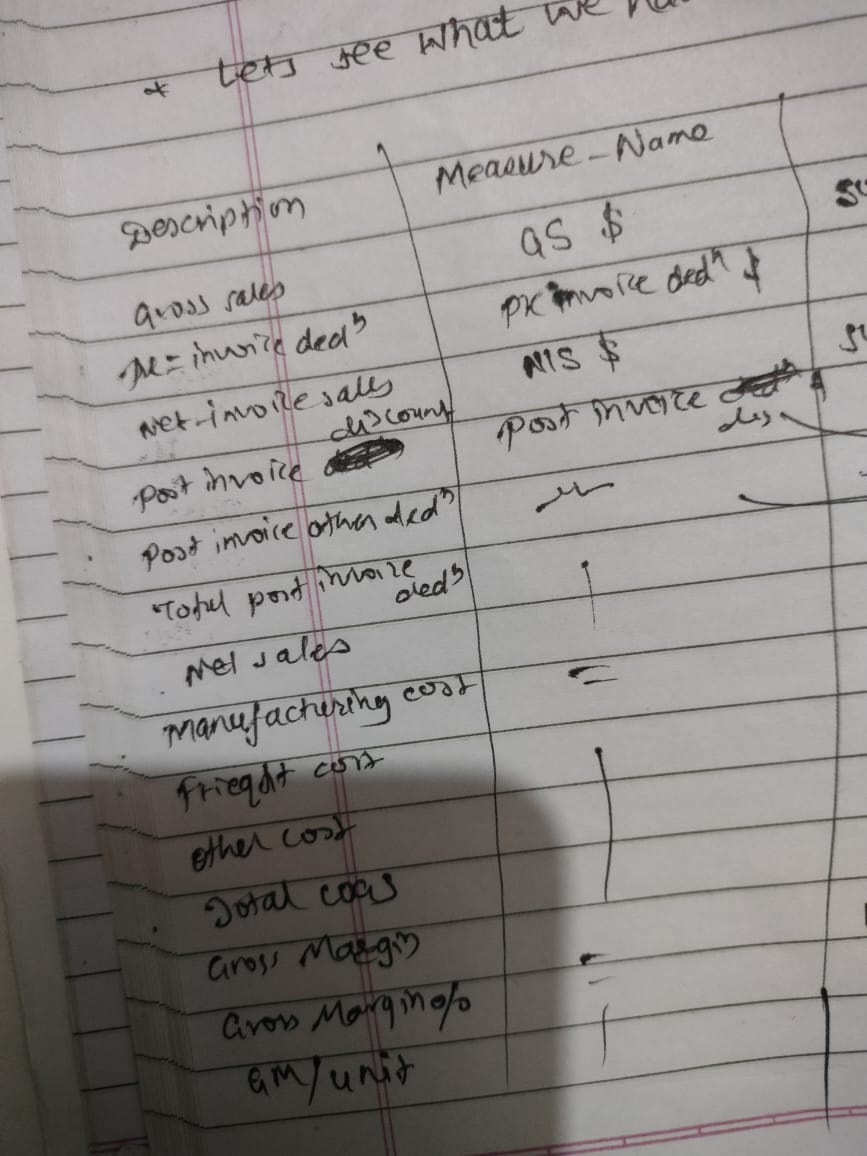 * Lets see what we
Description Measure-Name
Gross sales GS $
Pre-invoice dedn Pre invoice dedn $
Net-invoice sales NIS $
Post invoice discount Post invoice dis
Post invoice other dedn
Total post invoice dedn
Net sales
Manufacturing cost
Frieght cost
Other cost
Total COGS
Gross Margin
Gross Margin %
GM/unit